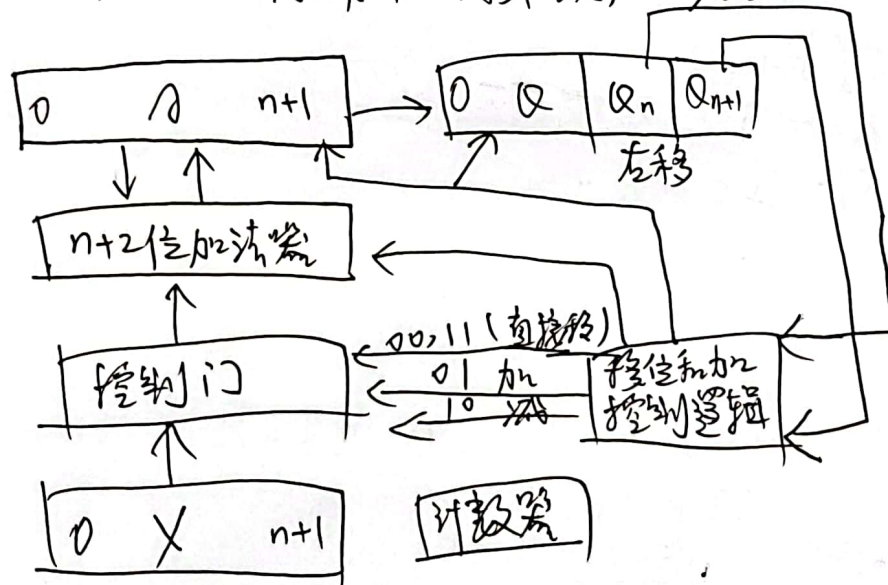 0 A n+1
0 Q Qn Qn+1
右移
n+2位加法器
00,11(直接移)
控制门
01 加
10 减
移位和加
控制逻辑
0 X n+1
计数器